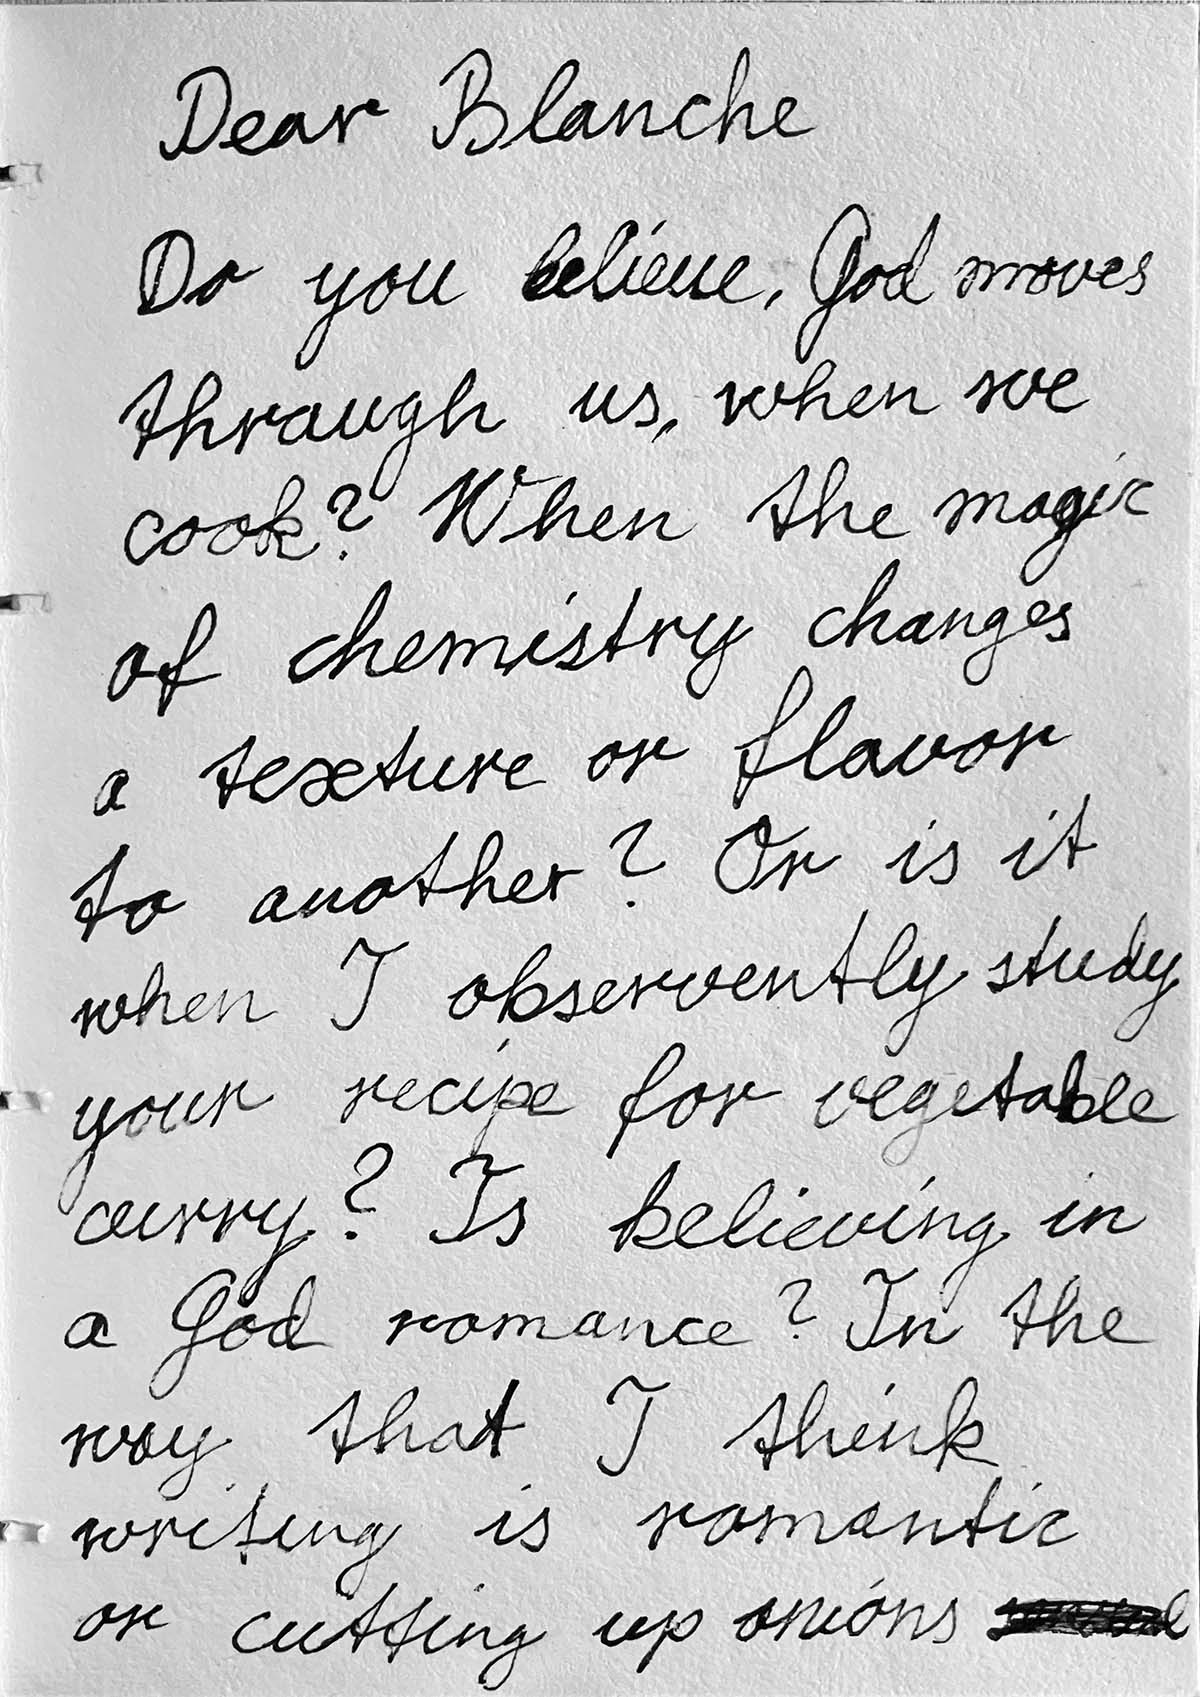 Dear Blanche
Do you believe, God moves
through us, when we
cook? When the magic
of chemistry changes
a texture or flavor
to another? Or is it
when I observently study
your recipe for vegetable
curry? Is believing in
a God romance? In the
way that I think
writing is romantic
or cutting up onions